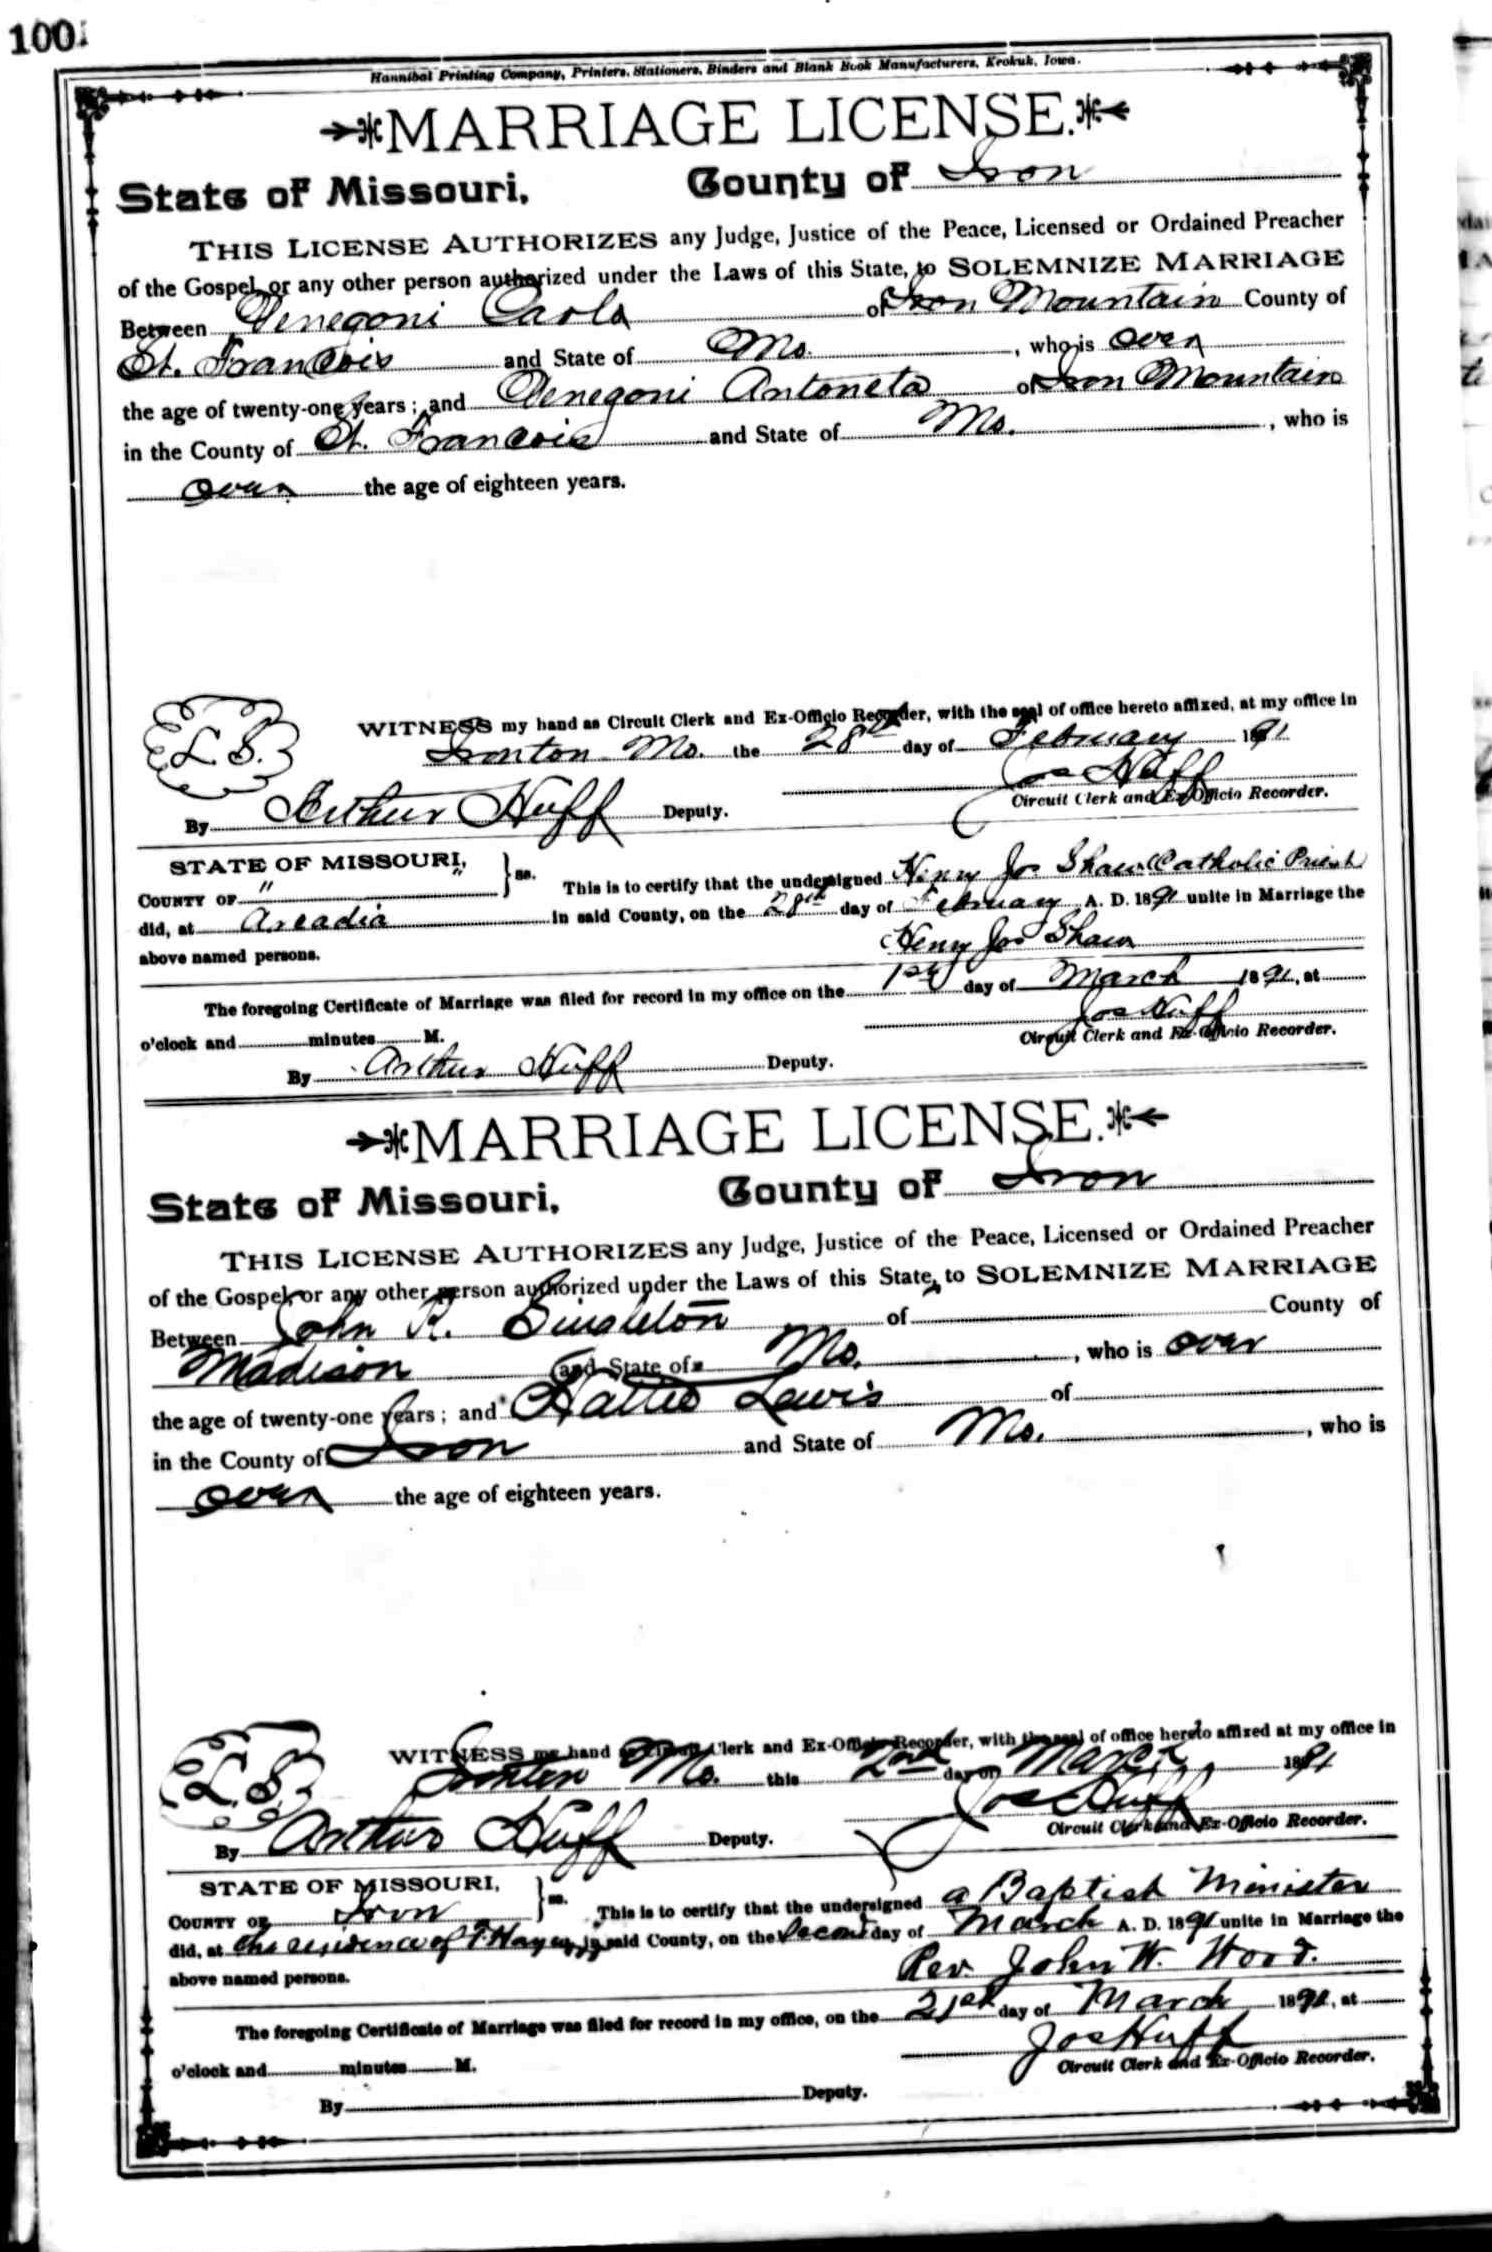 100
Hannibal Printing Company, Printers, Stationers, Binders and Blank Book Manufacturers, Keokuk, Iowa.
MARRIAGE LICENSE.
State of Missouri, County of Iron
THIS LICENSE AUTHORIZES any Judge, Justice of the Peace, Licensed or Ordained Preacher
of the Gospel, or any other person authorized under the Laws of this State, to SOLEMNIZE MARRIAGE
Between Venegoni Carlo of Iron Mountain County of
St. Francois and State of Mo. , who is over
the age of twenty-one years; and Venegoni Antoneta of Iron Mountain
in the County of St. Francois and State of Mo. , who is
over the age of eighteen years.
WITNESS my hand as Circuit Clerk and Ex-Officio Recorder, with the seal of office hereto affixed, at my office in
L. S. Ironton Mo. the 28th day of February 1891
Jos Huff
By Arthur Huff Deputy. Circuit Clerk and Ex-Officio Recorder.
STATE OF MISSOURI, } ss. This is to certify that the undersigned Henry Jos Shaw Catholic Priest
COUNTY OF " "
did, at Arcadia in said County, on the 28th day of February A. D. 1891 unite in Marriage the
above named persons. Henry Jos Shaw
The foregoing Certificate of Marriage was filed for record in my office on the 1st day of March 1891, at
o'clock and minutes M. Jos Huff
Circuit Clerk and Ex-Officio Recorder.
By Arthur Huff Deputy.
MARRIAGE LICENSE.
State of Missouri, County of Iron
THIS LICENSE AUTHORIZES any Judge, Justice of the Peace, Licensed or Ordained Preacher
of the Gospel, or any other person authorized under the Laws of this State, to SOLEMNIZE MARRIAGE
Between John R. Singleton of County of
Madison and State of Mo. , who is over
the age of twenty-one years; and Hattie Lewis of
in the County of Iron and State of Mo. , who is
over the age of eighteen years.
WITNESS my hand as Circuit Clerk and Ex-Officio Recorder, with the seal of office hereto affixed at my office in
L. S. Ironton Mo. this 2nd day of March 1891
Jos Huff
By Arthur Huff Deputy. Circuit Clerk and Ex-Officio Recorder.
STATE OF MISSOURI, } ss. This is to certify that the undersigned a Baptist Minister
COUNTY OF Iron
did, at the residence of in said County, on the Second day of March A. D. 1891 unite in Marriage the
above named persons. Rev. John W. Wood.
The foregoing Certificate of Marriage was filed for record in my office, on the 21st day of March 1891, at
o'clock and minutes M. Jos Huff
Circuit Clerk and Ex-Officio Recorder.
By Deputy.